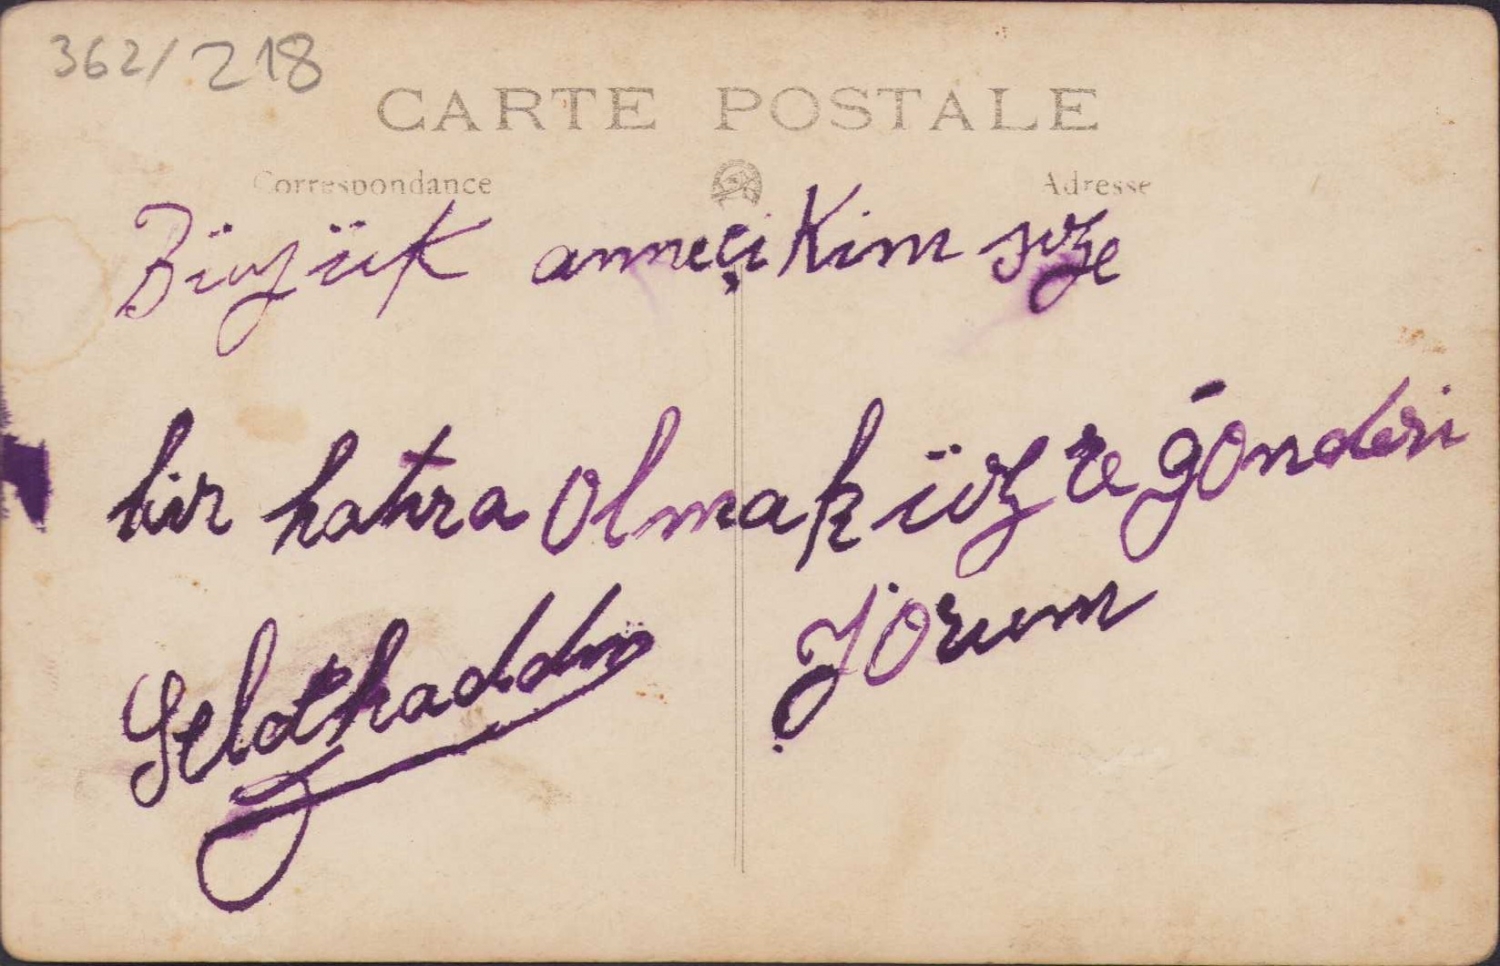 362/218
CARTE POSTALE
Correspondance
Adresse
Büyük anneçikim size
bir hatıra olmak üzre gönderi
yorum